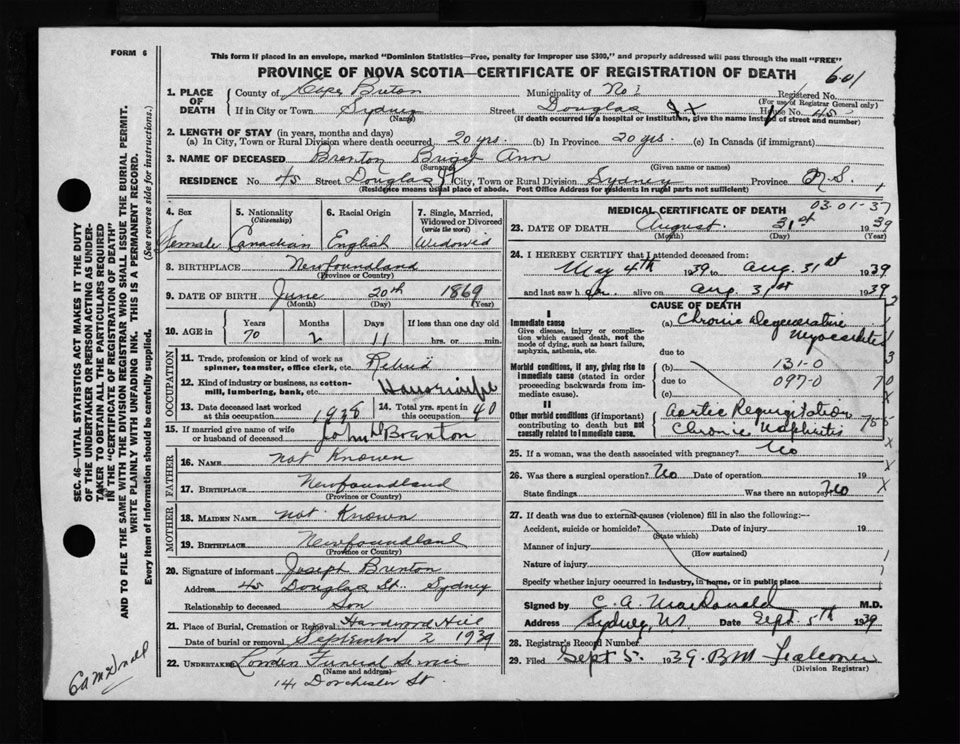 FORM 6
This form if placed in an envelope, marked "Dominion Statistics—Free, penalty for improper use $300," and properly addressed will pass through the mail "FREE"
PROVINCE OF NOVA SCOTIA—CERTIFICATE OF REGISTRATION OF DEATH 601
1. PLACE OF DEATH County of Cape Breton Municipality of No 1 Registered No.
(For use of Registrar General only)
If in City or Town Sydney Street Douglas St House No. 45
(Name) (If death occurred in a hospital or institution, give the name instead of street and number)
2. LENGTH OF STAY (in years, months and days)
(a) In City, Town or Rural Division where death occurred 20 yrs. (b) In Province 20 yrs. (c) In Canada (if immigrant)
3. NAME OF DECEASED Brenton Ann
(Surname) (Given name or names)
RESIDENCE No. 45 Street Douglas St City, Town or Rural Division Sydney Province N.S.
(Residence means usual place of abode. Post Office Address for residents in rural parts not sufficient)
4. Sex Female
5. Nationality (Citizenship) Canadian
6. Racial Origin English
7. Single, Married, Widowed or Divorced (write the word) Widowed
8. BIRTHPLACE Newfoundland
(Province or Country)
9. DATE OF BIRTH June 20th 1869
(Month) (Day) (Year)
10. AGE in Years Months Days If less than one day old
70 2 11 hrs. or min.
OCCUPATION
11. Trade, profession or kind of work as spinner, teamster, office clerk, etc. Retired
12. Kind of industry or business, as cotton-mill, lumbering, bank, etc. Housewife
13. Date deceased last worked at this occupation 1938
14. Total yrs. spent in this occupation 40
15. If married give name of wife or husband of deceased John Brenton
FATHER
16. NAME not Known
17. BIRTHPLACE Newfoundland
(Province or Country)
MOTHER
18. MAIDEN NAME not Known
19. BIRTHPLACE Newfoundland
(Province or Country)
20. Signature of informant Joseph Brenton
Address 45 Douglas St. Sydney
Relationship to deceased Son
21. Place of Burial, Cremation or Removal Hardwood Hill
Date of burial or removal September 2 1939
22. UNDERTAKER Funeral Service
(Name and address)
141 Dorchester St.
MEDICAL CERTIFICATE OF DEATH 03-01-37
23. DATE OF DEATH August 31st 1939
(Month) (Day) (Year)
24. I HEREBY CERTIFY that I attended deceased from:
May 4th 1939 to Aug. 31st 1939
and last saw her alive on Aug. 31st 1939
CAUSE OF DEATH
I
Immediate cause
Give disease, injury or complication which caused death, not the mode of dying, such as heart failure, asphyxia, asthenia, etc.
(a) Chronic Degenerative Myocarditis
due to
Morbid conditions, if any, giving rise to immediate cause (stated in order proceeding backwards from immediate cause).
(b) 131-0
due to 097-0
(c)
II
Other morbid conditions (if important) contributing to death but not causally related to immediate cause.
Aortic Regurgitation
Chronic Nephritis
25. If a woman, was the death associated with pregnancy? No
26. Was there a surgical operation? No Date of operation 19
State findings Was there an autopsy? No
27. If death was due to external causes (violence) fill in also the following:—
Accident, suicide or homicide? Date of injury 19
(State which)
Manner of injury
(How sustained)
Nature of injury
Specify whether injury occurred in industry, in home, or in public place
Signed by C. A. MacDonald M.D.
Address Sydney, NS. Date Sept. 5th 1939
28. Registrar's Record Number
29. Filed Sept 5. 1939. BM Falconer
(Division Registrar)
SEC. 46—VITAL STATISTICS ACT MAKES IT THE DUTY
OF THE UNDERTAKER OR PERSON ACTING AS UNDER-
TAKER TO OBTAIN ALL THE PARTICULARS REQUIRED
IN THE "CERTIFICATE OF REGISTRATION OF DEATH"
AND TO FILE THE SAME WITH THE DIVISION REGISTRAR WHO SHALL ISSUE THE BURIAL PERMIT.
WRITE PLAINLY WITH UNFADING INK. THIS IS A PERMANENT RECORD.
Every item of information should be carefully supplied. (See reverse side for instructions.)